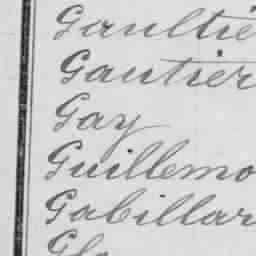 Gaultie
Gautier
Gay
Guillemo
Gabillar